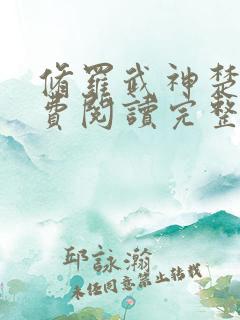 修羅武神楚
費閱讀完整
邱詠瀚
未经同意禁止转载